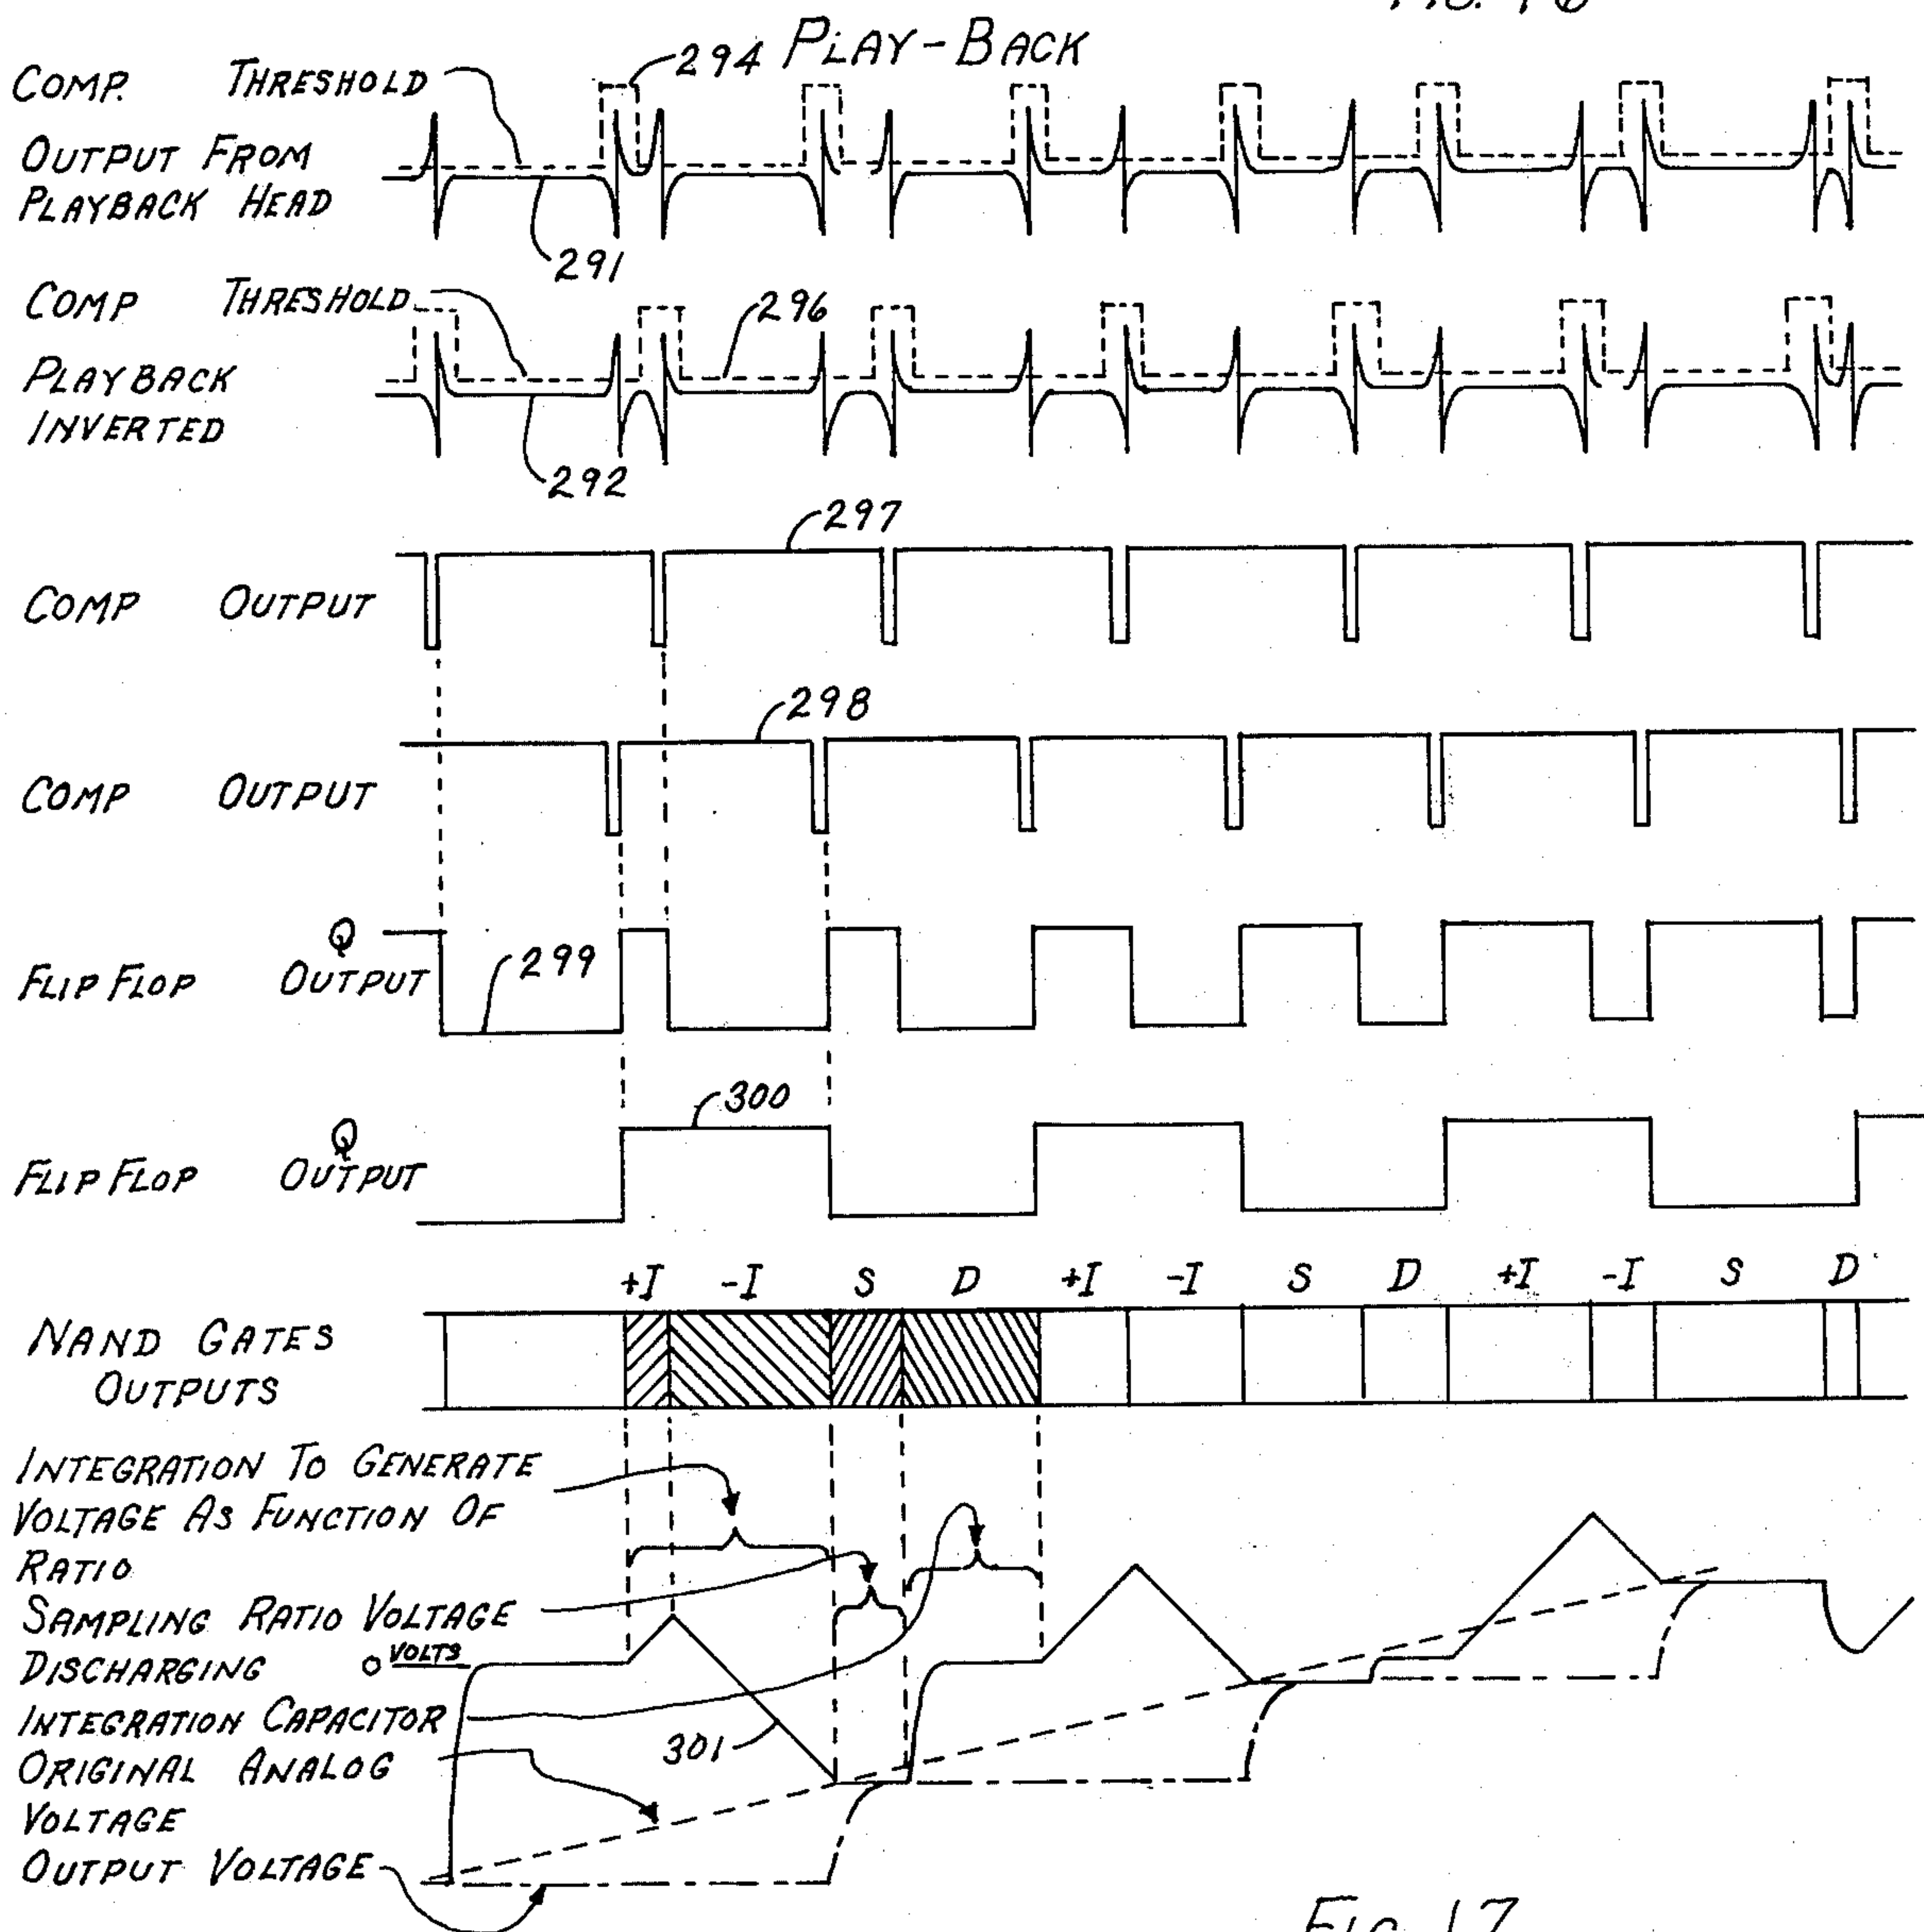 FIG. 16
PLAY-BACK
294
COMP. THRESHOLD
OUTPUT FROM
PLAYBACK HEAD
291
COMP THRESHOLD
296
PLAYBACK
INVERTED
292
297
COMP OUTPUT
298
COMP OUTPUT
Q
FLIP FLOP OUTPUT
299
300
Q
FLIP FLOP OUTPUT
+I -I S D +I -I S D +I -I S D
NAND GATES
OUTPUTS
INTEGRATION TO GENERATE
VOLTAGE AS FUNCTION OF
RATIO
SAMPLING RATIO VOLTAGE
DISCHARGING O VOLTS
INTEGRATION CAPACITOR
301
ORIGINAL ANALOG
VOLTAGE
OUTPUT VOLTAGE
FIG. 17